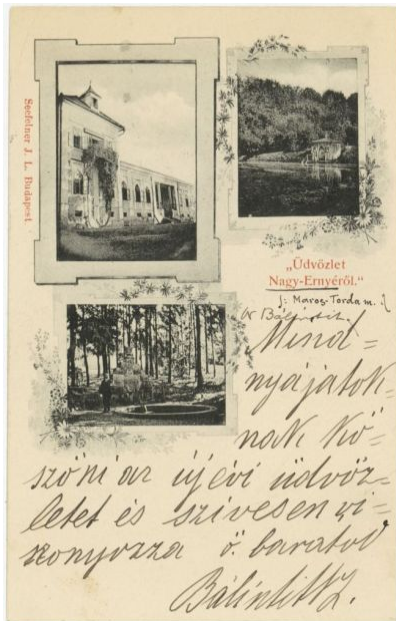 Seefelner J. L. Budapest
„Üdvözlet
Nagy-Ernyéről.“
Maros-Torda m.
Mind-
nyájatok-
nak kö-
szöni az újévi üdvöz-
letet és szívesen vi-
szonyozza ő. barátod
Bálintitt